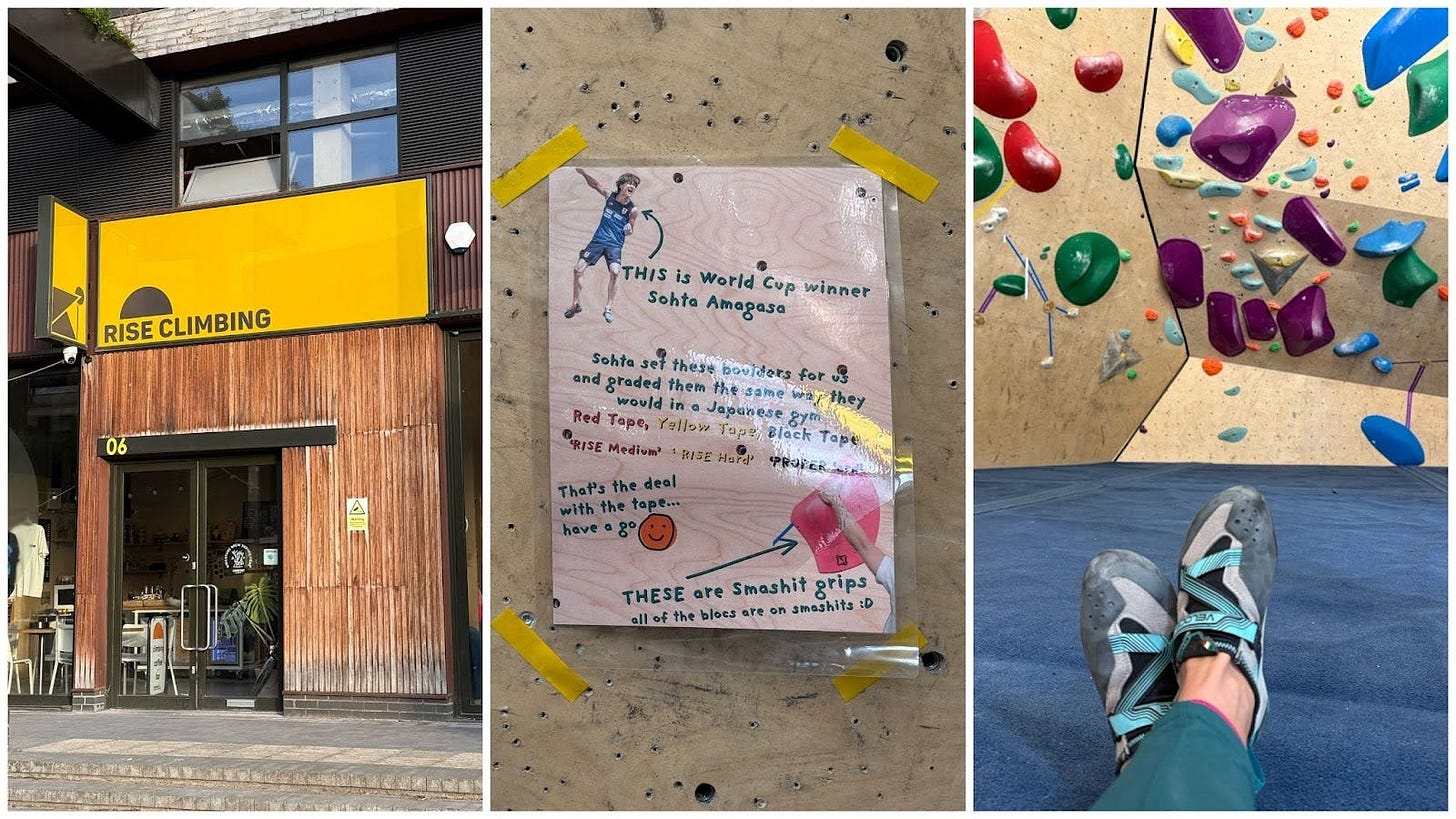 RISE CLIMBING
06
THIS is World Cup winner
Sohta Amagasa
Sohta set these boulders for us
and graded them the same way they
would in a Japanese gym.
Red Tape, Yellow Tape, Black Tape
'RISE Medium' 'RISE Hard' 'PROPER
That's the deal
with the tape...
have a go
THESE are Smashit grips
all of the blocs are on smashits :D